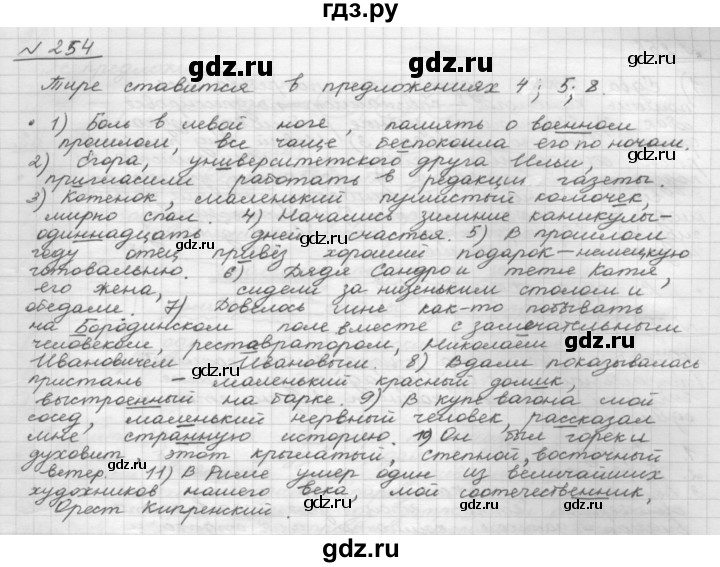 гдз.ру
№ 254
Тире ставится в предложениях 4; 5; 8.
• 1) Боль в левой ноге, память о военном
прошлом, все чаще беспокоила его по ночам.
2) Егора, университетского друга Ильи,
пригласили работать в редакции газеты.
3) Котенок, маленький пушистый комочек,
мирно спал. 4) Начались зимние каникулы-
одиннадцать дней счастья. 5) В прошлом
году отец привёз хороший подарок – немецкую
готовальню. 6) Дядя Сандро и тетя Катя,
его жена, сидели за низеньким столом и
обедали. 7) Довелось мне как-то побывать
на Бородинском поле вместе с замечательным
человеком, реставратором, Николаем
Ивановичем Ивановым. 8) Вдали показывалась
пристань – маленький красный домик,
выстроенный на барке. 9) В купе вагона мой
сосед, маленький нервный человек, рассказал
мне странную историю. 10) Он был горек и
духовит этот крылатый, степной, восточный
ветер. 11) В Риме умер один из величайших
художников нашего века, мой соотечественник,
Орест Кипренский.
gdz.ru
gdz.ru
gdz.ru
gdz.ru
gdz.ru
gdz.ru
gdz.ru
gdz.ru
gdz.ru
gdz.ru
gdz.ru
gdz.ru
gdz.ru